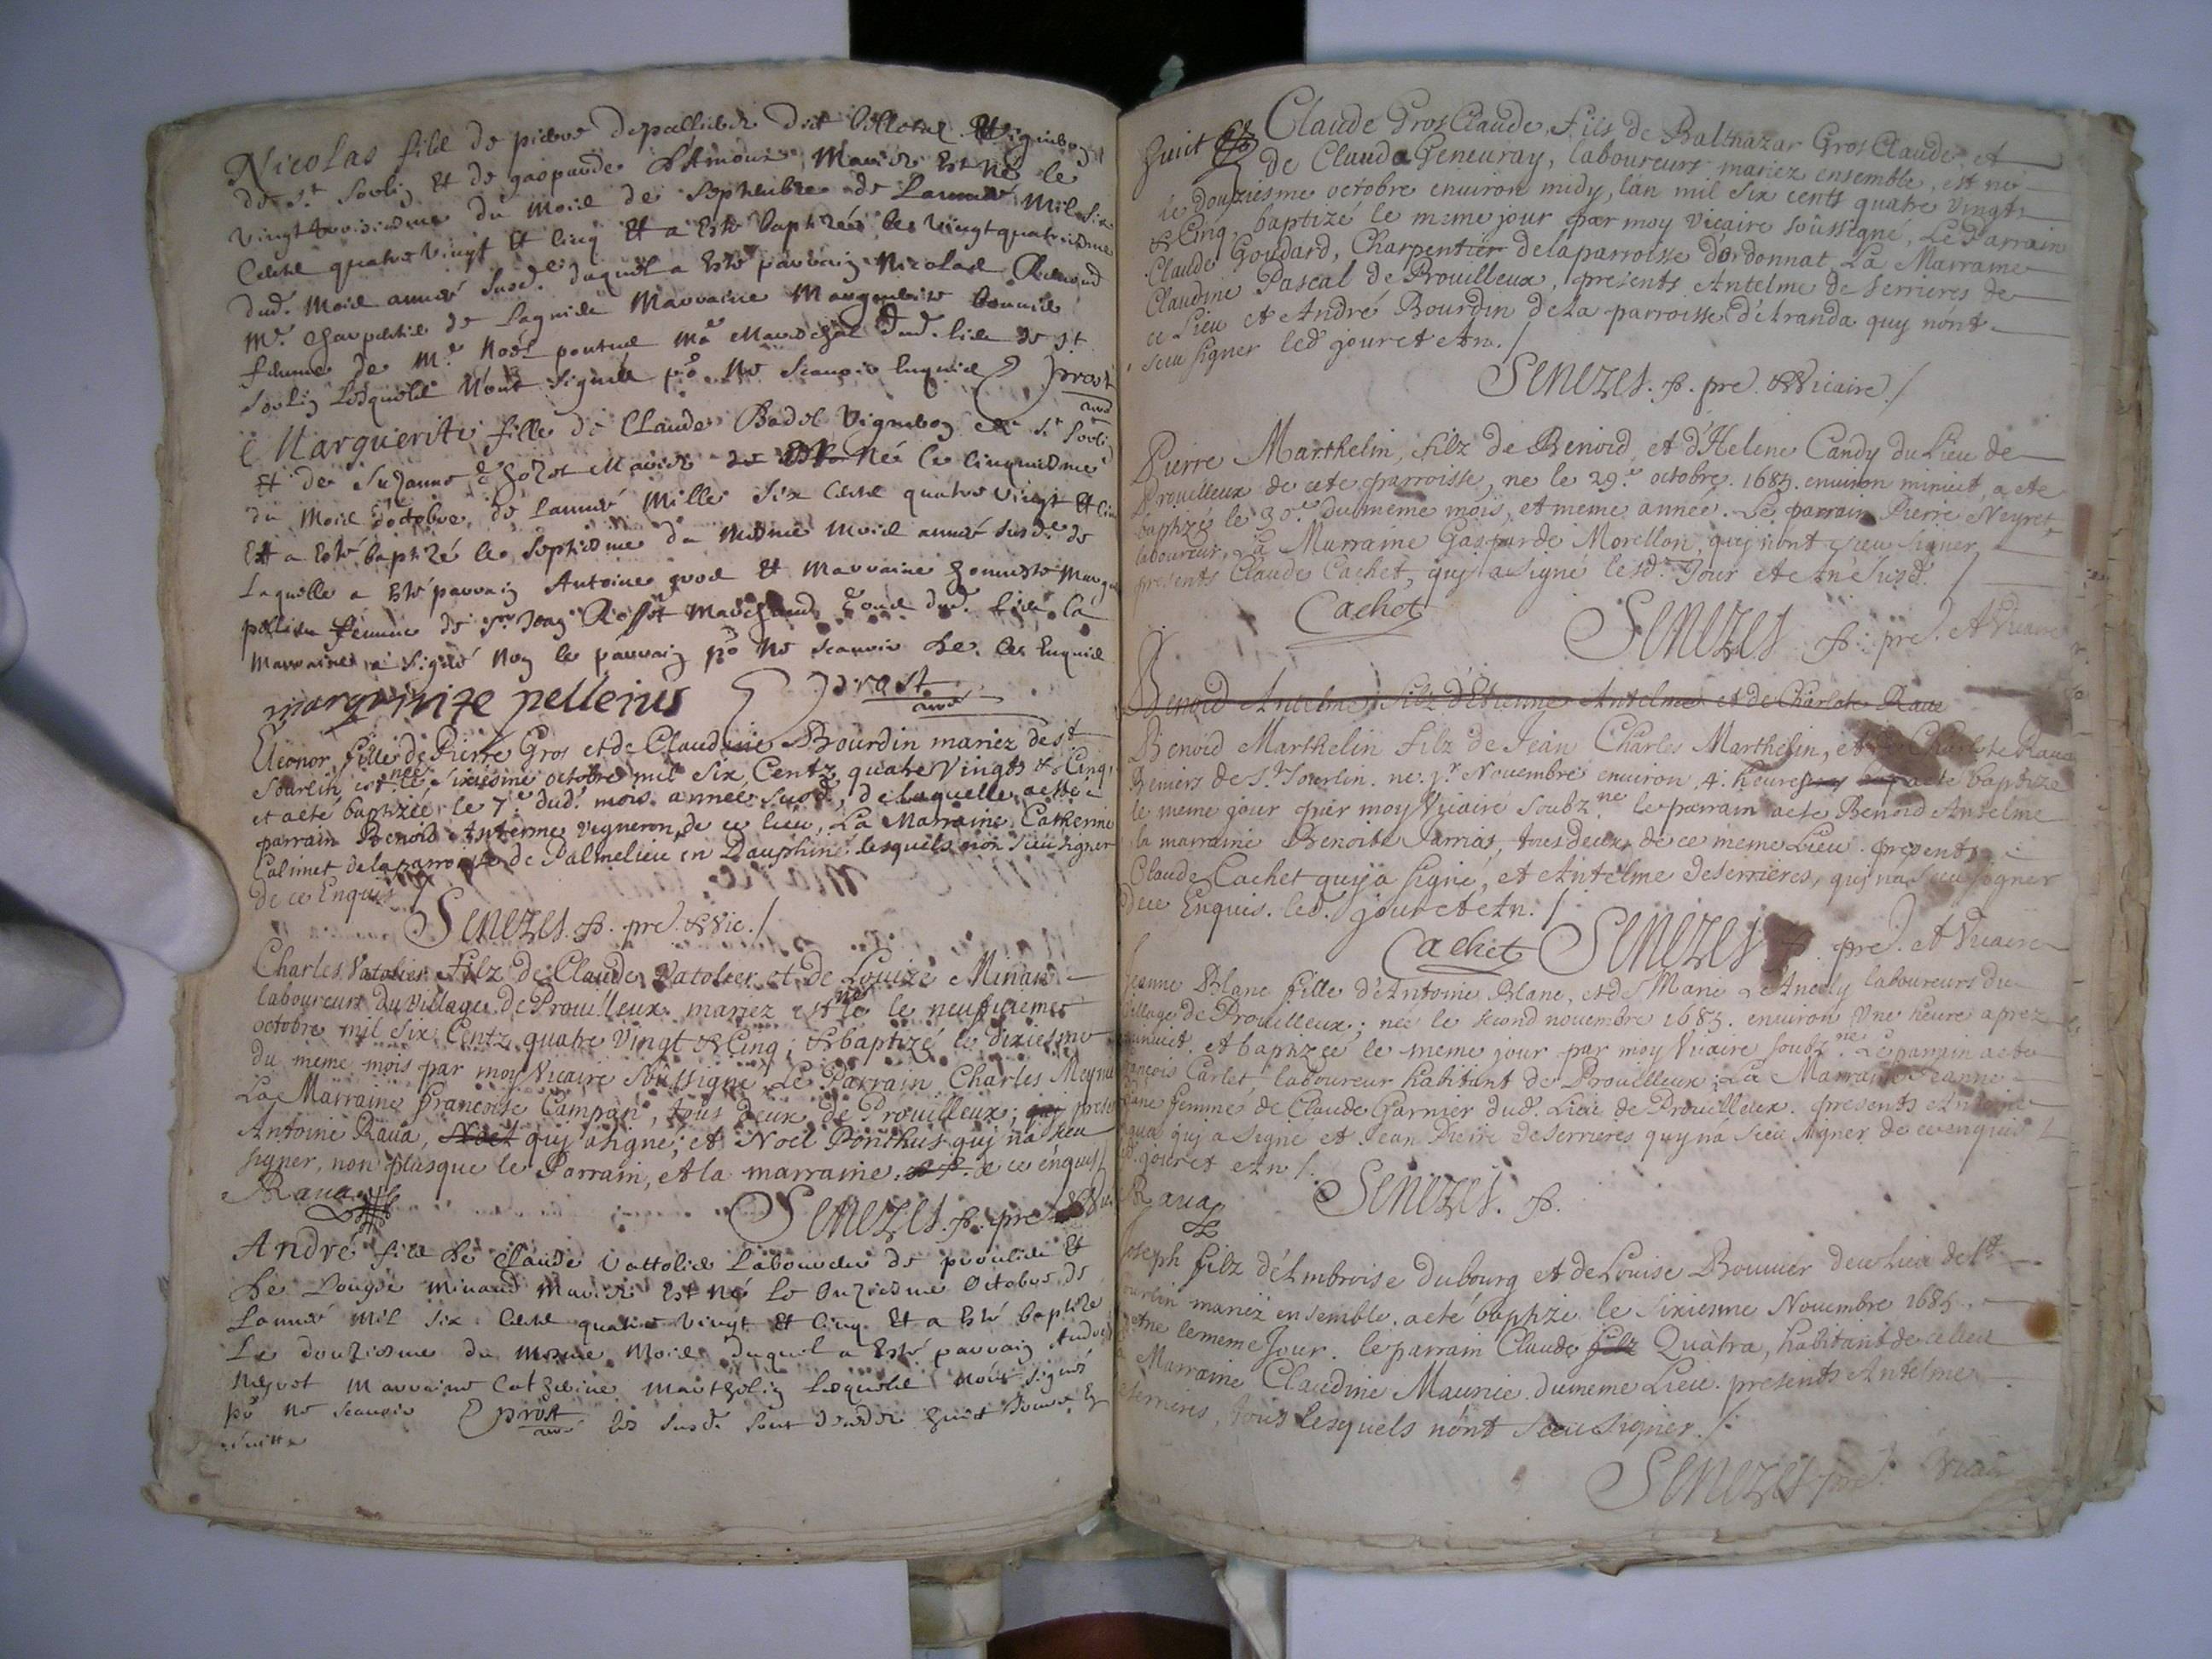 Nicolas filz de pierre depallieres dit Villotal Vigneron
de St Sorlin Et de gasparde Lamoux Mariez Est né le
vingt troisiesme du mois de Septembre de Lannee Mil Six
Centz quatre vingt Et Cinq Et a Esté baptizé le vingtquatriesme
dud. mois année Susd. duquel a Esté parrain Nicolas Remond
Me. charpentier de Lagnieu Marraine Marguerite
femme de Me Noël ponthus Me Mareschal dud. lieu de St
Sorlin Lesquelz Nont Signés po. Ne Scavoir Enquis Prost
Marguerite fille de Claude Badel Vigneron de St Sorlin
Et de Suzanne Mariez né le Cinquiesme
du Mois d'octobre de Lannée Mille Six Centz quatre vingt Et Cinq
Et a Esté baptizé le Septiesme du mesme mois année Susde. de
Laquelle a Esté parrain Antoine Et marraine honneste
femme de Sr Jean Rosset Marchand dud. lieu La
marraine a Signé Non le parrain po Ne Scavoir de Ce Enquis
marguerite pelleins Prost
Eleonor fille de Pierre Gros et de Claudine Bourdin mariez de st
Sourlin, est née le sixiesme octobre mil six Centz quatre vingts & Cinq,
et a eté baptizée le 7e dud. mois année susd., de laquelle a esté
parrain Benoid Anterme vigneron de ce lieu, La Marraine Catherine
Calimet de la parroisse de Palmelieu en Dauphiné lesquels n'on sceu signer
de ce Enquis /
Senezes. p. pre. & Vic. /
Charles Vatolier Filz de Claude Vatolier et de Louize Minan
laboureurs du village de Prouilleux mariez est né le neufuieme
octobre mil six Centz quatre vingt & Cinq; & baptizé le dixiesme
du meme mois par moy Vicaire soussigné, Le Parrain Charles Meynan
La Marraine Francoise Campan, tous deux de Prouilleux; qui presents
Antoine Raua, Noel qui a signé; et Noel Ponthus qui n'a sceu
signer, non plusque le Parrain, et la marraine. de ce enquis /
Raua
Senezes. p. pre. & Vic.
André filz de Claude Vattolier Laboureur de proulieu Et
de Louyse minand Mariez Est Né Le Onziesme Octobre de
Lannée mil Six Centz quatre vingt Et Cinq Et a Esté baptizé
Le douziesme du mesme Mois duquel a Esté parrain André
Neyret Marraine Catherine Marthelin Lesquelz Nont Signés
po ne Scavoir Prost les Susd. Sont
Claude Gros Claude, Fils de Balthazar Gros Claude et
de Clauda Geneuray, laboureurs mariez ensemble, est né
le douziesme octobre enuiron midy, l'an mil six cents quatre vingts
& Cinq, baptizé le meme jour par moy vicaire soussigné, Le Parrain
Claude Goudard, Charpentier de la parroisse d'ordonnat, La Marraine
Claudine Pascal de Prouilleux, presents Antelme de serrieres de
ce Lieu et André Bourdin de la parroisse d'Aranda quy n'ont
sceu signer led jour et An. /
Senezes. p. pre. & Vicaire. /
Pierre Marthelin, filz de Benoid, et d'Helene Candy du Lieu de
Prouilleux de cete parroisse, ne le 29.e octobre. 1685. enuiron minuict, a ete
baptizé le 30.e du meme mois, et meme année. Le parrain Pierre Neyret,
laboureur, La Marraine Gasparde Morellon, quj n'ont sceu signer
presents Claude Cachet, quj a signé lesd. Jour et An Susd. /
Cachet
Senezes p. pre. et Vicaire
Benoid Antelme filz d'Etienne Antelme et de Charlote Raue
Benoid Marthelin filz de Jean Charles Marthelin, et de Charlote Raua
de St Sourlin. ne. 1r Nouembre enuiron 4. heures a ete baptize
le meme jour par moy Vicaire soubz.ne le parrain a ete Benoid Antelme
la marraine Benoite Jarrias, tous deux de ce meme Lieu. presents
Claude Cachet quj a signé, et Antelme de serrieres, quj n'a sceu signer
de ce Enquis. led. jour et An. /
Cachet Senezes pre. et Vicaire
Jeanne Blanc fille d'Antoine Blanc, et de Marie Ancely laboureurs du
village de Prouilleux; née le second nouembre 1685. enuiron Vne heure aprez
minuict. et baptizée le meme jour par moy Vicaire soubz.ne Le parrain a ete
François Carlet, laboureur habitant de Prouilleux; La Marraine Jeanne
femme de Claude Garnier dud. Lieu de Prouilleux. presents Antoine
Raua quj a signé et Jean Pierre de serrieres quy n'a sceu signer de ce enquis
led. jour et An /.
Raua Senezes. p.
Joseph filz d'Ambroise Dubourg et de Louise Bouuier de ce Lieu de St
Sourlin mariez ensemble. a eté baptize le sixienne Nouembre 1685.
et ne le meme Jour. le parrain Claude filz Quatra, habitant de ce lieu
La Marraine Claudine Maurice du meme Lieu. presents Antelme
de serrieres, tous lesquels n'ont sceu signer. /.
Senezes pre. Vicaire